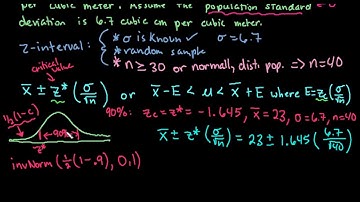 per cubic meter. Assume the population standard
deviation is 6.7 cubic cm per cubic meter.
z-interval: { * σ is known ✓ σ=6.7
* random sample
* n ≥ 30 or normally dist. pop. => n=40
critical value
x̄ ± z* (σ/√n) or x̄-E < μ < x̄+E where E=z_c(σ/√n)
½(1-C)
90%
z*
90%: z_c = z* = -1.645, x̄=23, σ=6.7, n=40
x̄ ± z* (σ/√n) = 23 ± 1.645 (6.7/√40)
invNorm (½(1-.9), 0,1)